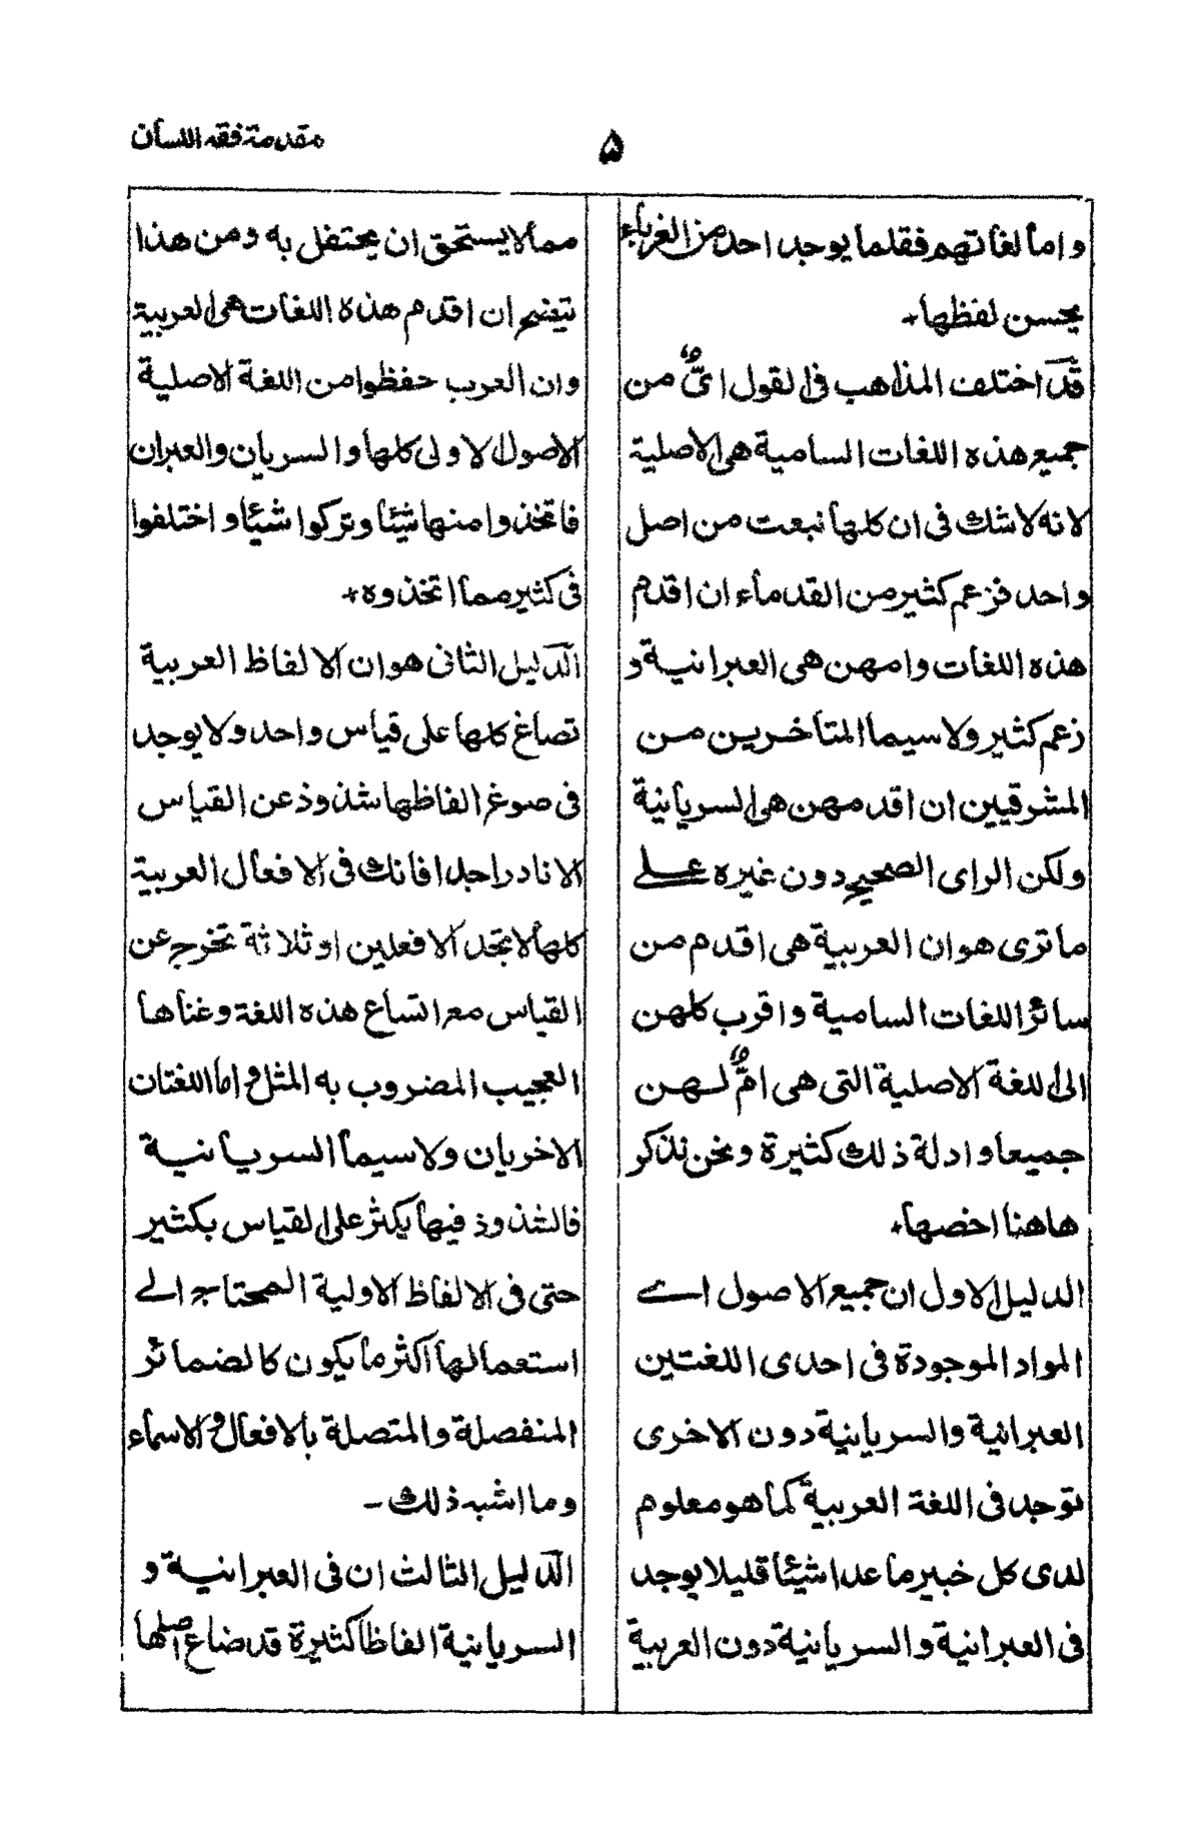 مقدمة فقه اللسان
۵
واما لغاتهم فقلما يوجد احد من الغرباء
يحسن لفظها+
قد اختلف المذاهب فى القول اىٌّ من
جميع هذه اللغات السامية هى الاصلية
لانه لا شك فى ان كلها نبعت من اصل
واحد فزعم كثير من القدماء ان اقدم
هذه اللغات وامهن هى العبرانية و
زعم كثير ولا سيما المتأخرين من
المشرقيين ان اقدمهن هى السريانية
ولكن الراى الصحيح دون غيره على
ما ترى هو ان العربية هى اقدم من
سائر اللغات السامية واقرب كلهن
الى اللغة الاصلية التى هى امٌّ لهن
جميعا وادلة ذلك كثيرة ونحن نذكر
هاهنا اخصها+
الدليل الاول ان جميع الاصول اے
المواد الموجودة فى احدى اللغتين
العبرانية والسريانية دون الاخرى
توجد فى اللغة العربية كما هو معلوم
لدى كل خبير ما عدا شيئا قليلا يوجد
فى العبرانية والسريانية دون العربية
مما لا يستحق ان يحتفل به ومن هذا
يتضح ان اقدم هذه اللغات هى العربية
وان العرب حفظوا من اللغة الاصلية
الاصول الاولى كلها والسريان والعبران
فاتخذوا منها شيئا وتركوا شيئا واختلفوا
فى كثير مما اتخذوه+
الدليل الثانى هو ان الالفاظ العربية
تصاغ كلها على قياس واحد ولا يوجد
فى صوغ الفاظها شذوذ عن القياس
الا نادرا جدا فانك فى الافعال العربية
كلها لا تجد الا فعلين او ثلاثة تخرج عن
القياس مع اتساع هذه اللغة وغناها
العجيب المضروب به المثل واما اللغتان
الاخريان ولا سيما السريانية
فالشذوذ فيها يكثر على القياس بكثير
حتى فى الالفاظ الاولية المحتاج الے
استعمالها اكثر ما يكون كالضمائر
المنفصلة والمتصلة بالافعال والاسماء
وما اشبه ذلك -
الدليل الثالث ان فى العبرانية و
السريانية الفاظا كثيرة قد ضاع اصلها